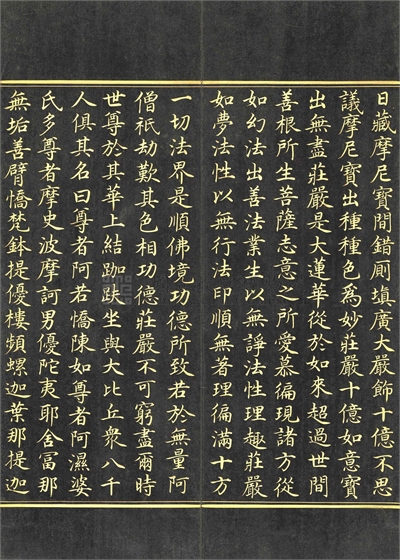 日藏摩尼寶間錯廁填廣大嚴飾十億不思
議摩尼寶出種種色為妙莊嚴十億如意寶
出無盡莊嚴是大蓮華從於如來超過世間
善根所生菩薩志意之所愛慕徧現諸方從
如幻法出善法業生以無諍法性理趣莊嚴
如夢法性以無行法印順無著理徧滿十方
一切法界是順佛境功德所致若於無量阿
僧祇劫歎其色相功德莊嚴不可窮盡爾時
世尊於其華上結跏趺坐與大比丘眾八千
人俱其名曰尊者阿若憍陳如尊者阿濕婆
氏多尊者摩史波摩訶男優陀夷耶舍富那
無垢善臂憍梵鉢提優樓頻螺迦葉那提迦